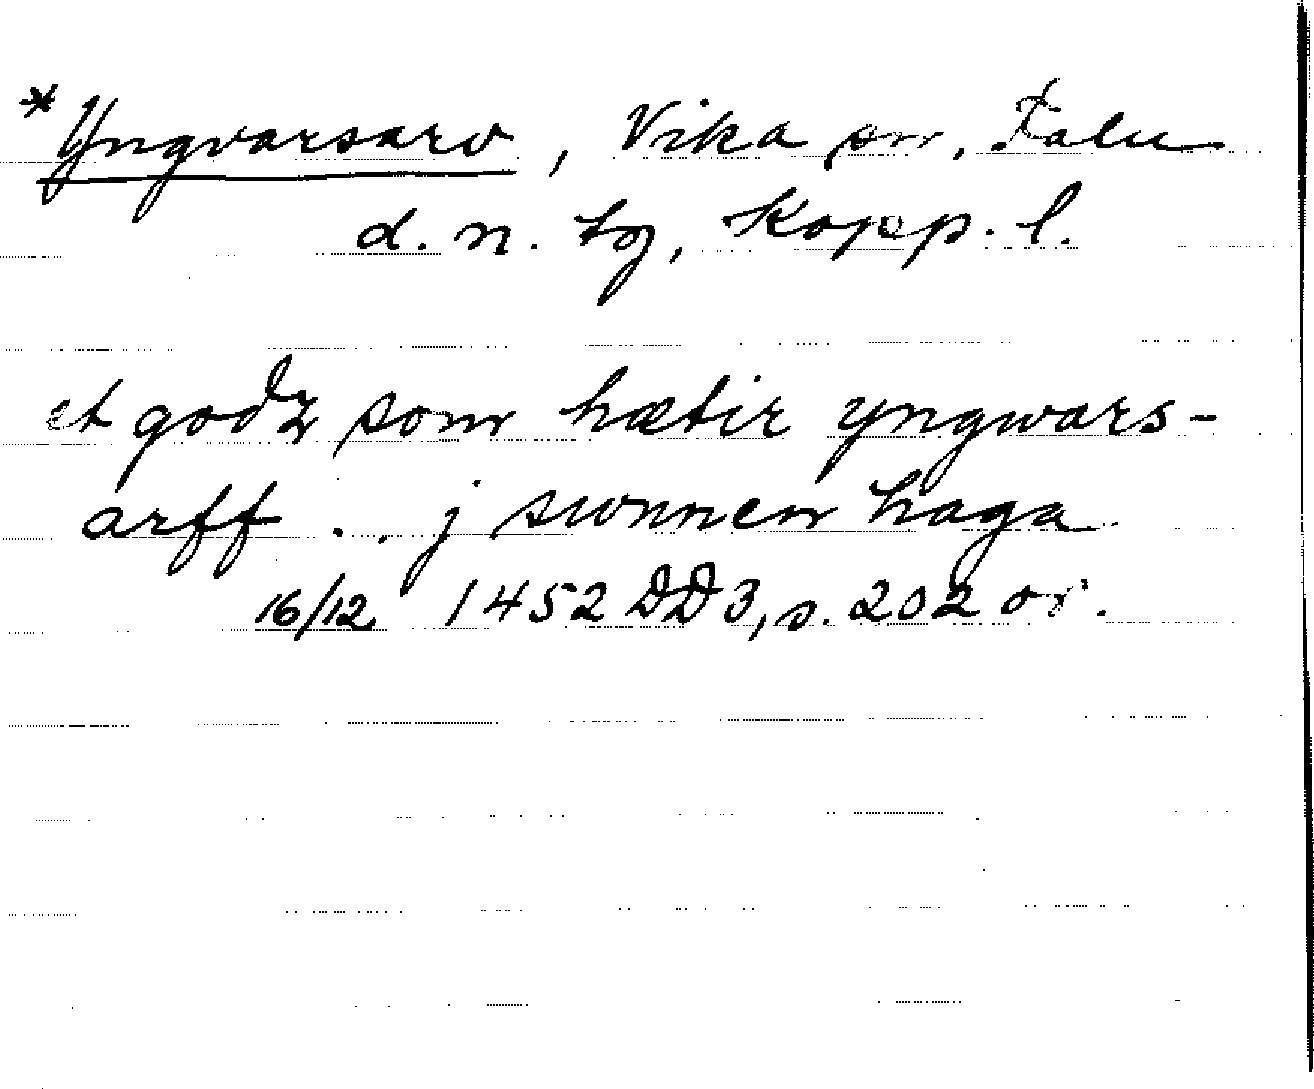 *Yngvarsarv, Vika sn, Falu
d. n. tg, Kopp. l.
et godz som hætir yngwars-
arff . . j swnnen haga
16/12 1452 DD 3, s. 202 or.